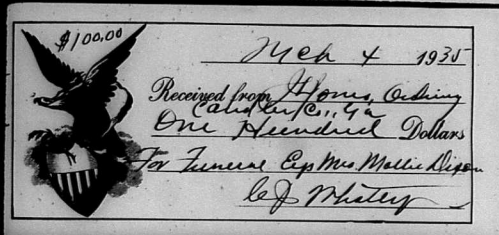 $100.00
Mch 4 1935
Received from H Jones, Ordinary
Candler Co., Ga
One Hundred Dollars
For Funeral Exp Mrs. Mollie Dixon